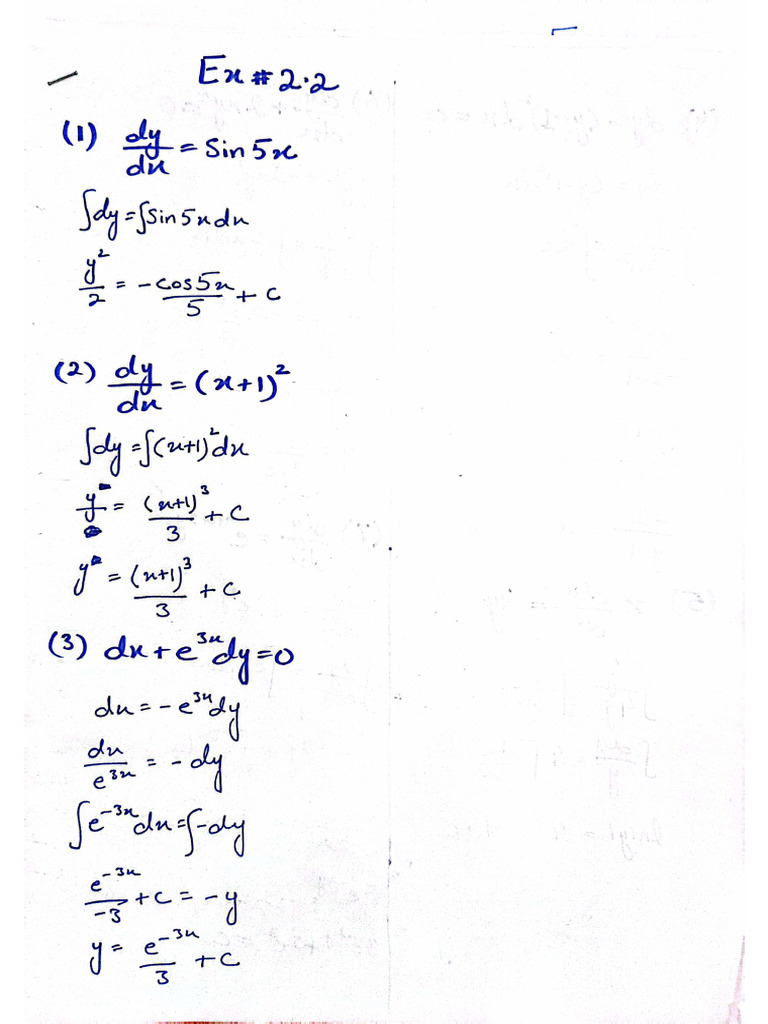 Ex # 2.2
(1) dy/dx = Sin 5x
∫dy = ∫Sin 5x dx
y²/2 = -cos5x/5 + c
(2) dy/dx = (x+1)²
∫dy = ∫(x+1)² dx
y = (x+1)³/3 + c
y = (x+1)³/3 + c
(3) dx + e³ˣ dy = 0
dx = - e³ˣ dy
dx/e³ˣ = - dy
∫e⁻³ˣ dx = ∫-dy
e⁻³ˣ/-3 + c = - y
y = e⁻³ˣ/3 + c